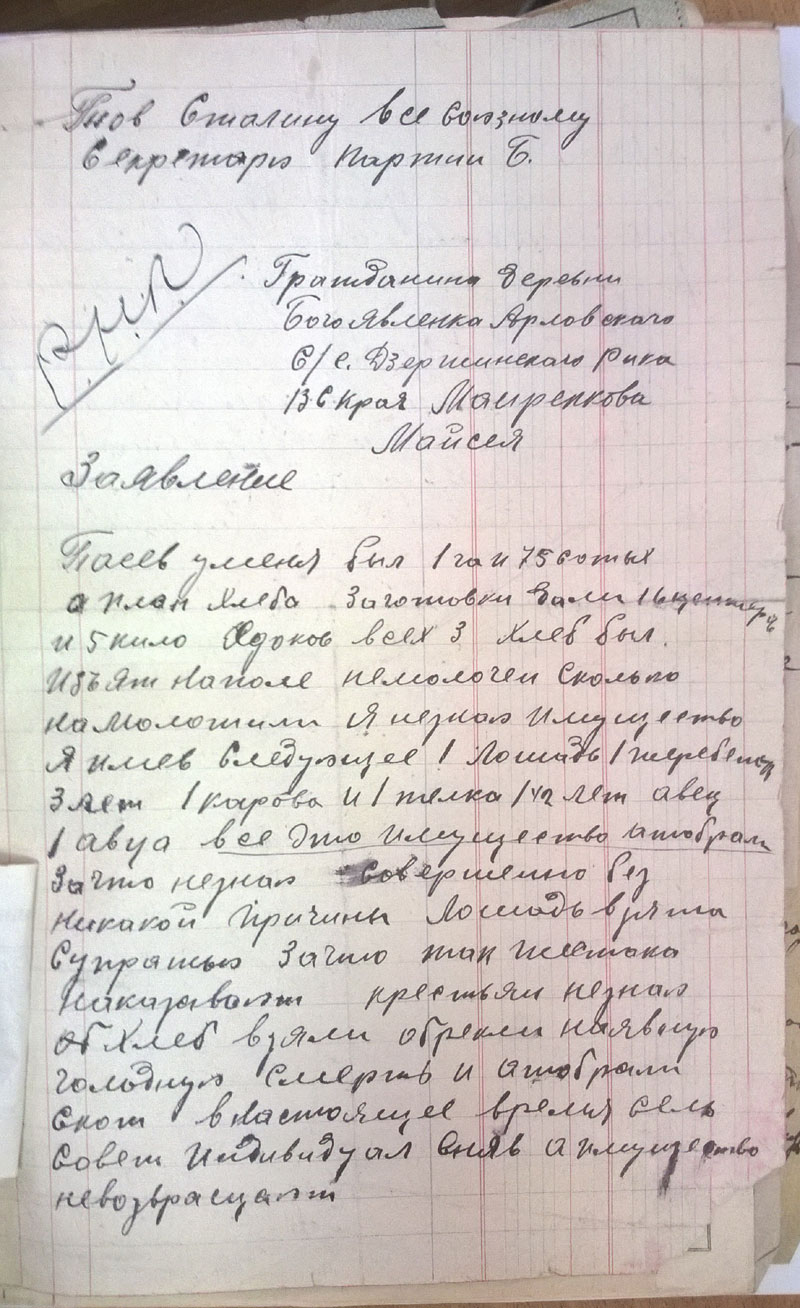 Тов Сталину все союзному
Секретарю партии Б.
Гражданина деревни
Богоявленка Арловского
С/с. Дзержинского Рика
ЗСКрая
Майсея
Заявление
Пасев уменя был 1 га и 75 сотых
а план хлеба заготовки дали 16 центнер
и 5 кило Едоков всех 3 хлеб был.
Изъят наполе немолочен сколько
намолотили я незнаю имущество
я имев следующее 1 лошадь 1 жеребенок
3 лет 1 карова и 1 телка 1 1/2 лет авец
1 авца все это имущество атобрали
зачто незнаю совершенно без
никакой причины лошадь взята
Супрягью зачто так жестака
наказывают крестьян незнаю
хлеб взяли обрекли наявную
голодную смерть и атобрали
скот внастоящее время сель
совет индивидуал сняв а имущество
невозвращают